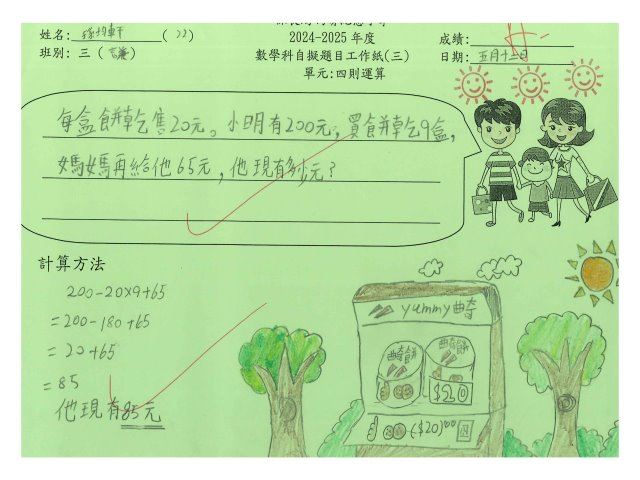 姓名: ( 22 )
2024-2025 年度
成績:
班別: 三 (
數學科自擬題目工作紙(三)
日期: 五月十二日
單元:四則運算
每盒餅乾售20元。小明有200元,買餅乾9盒,
媽媽再給他65元,他現有多少元?
計算方法
200-20×9+65
=200-180+65
=20+65
=85
他現有85元
yummy曲奇
曲奇餅
曲奇餅
$20
($20)